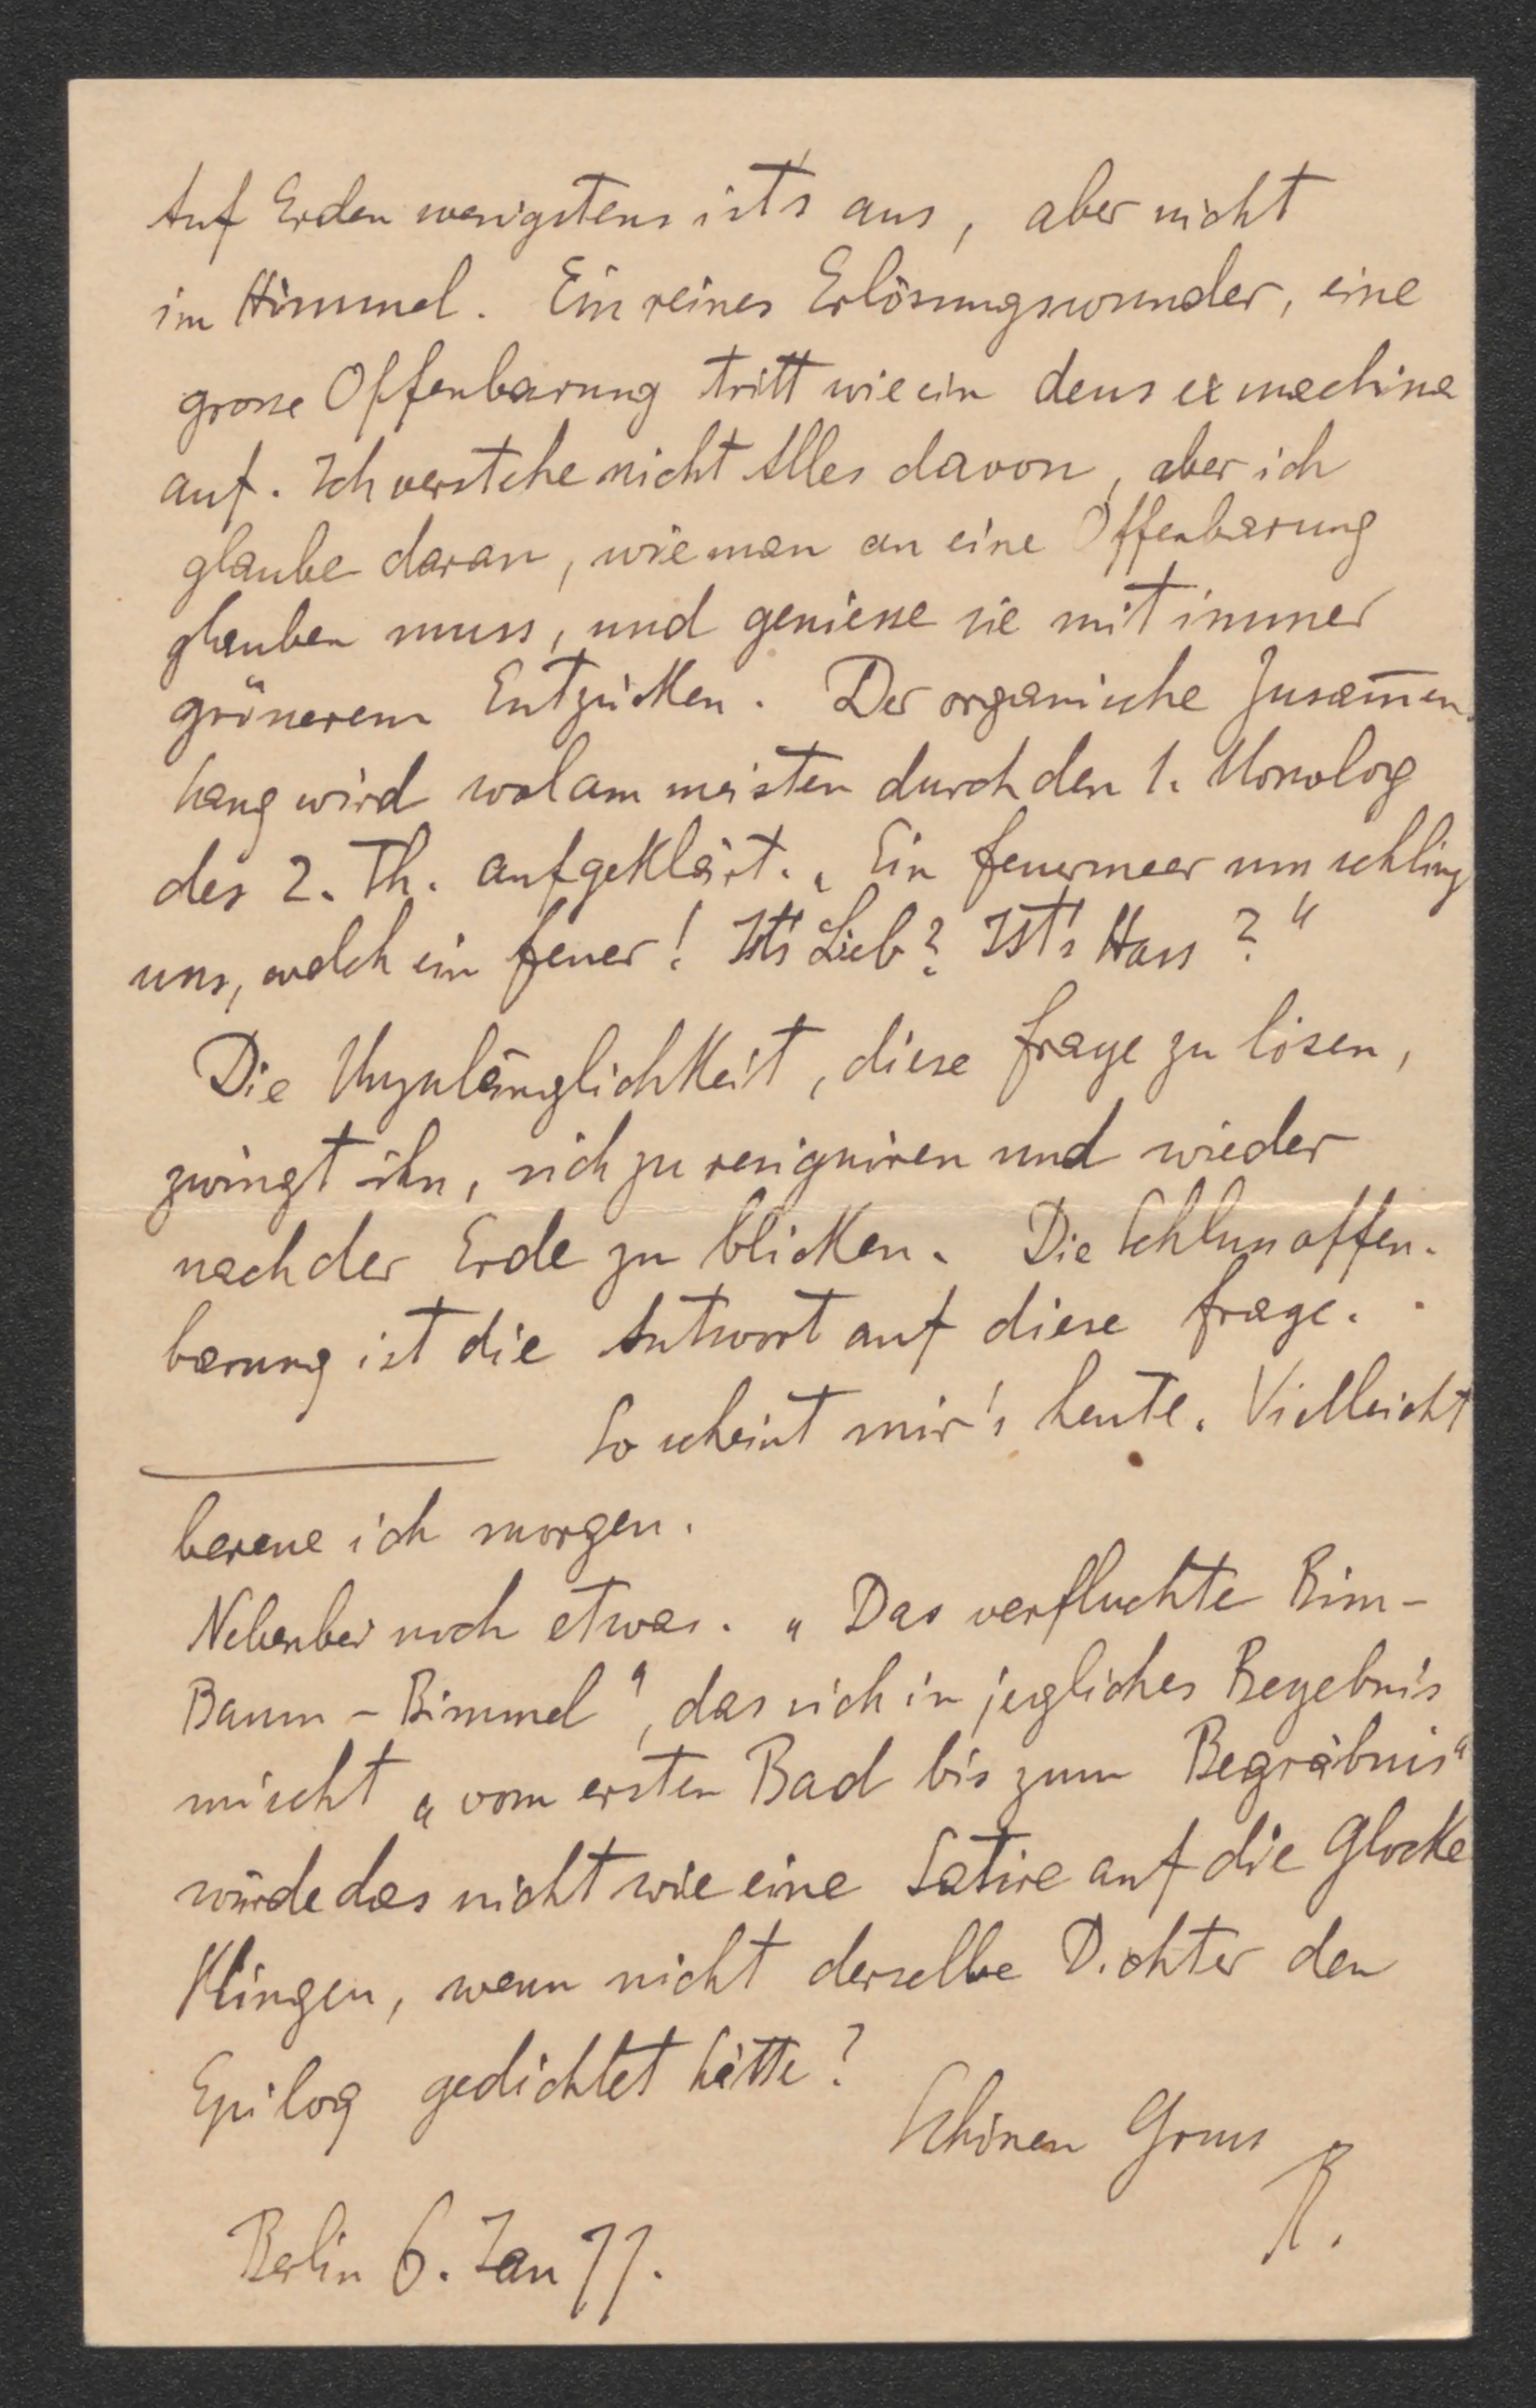 Auf Erden wenigstens ist's aus, aber nicht
im Himmel. Ein reines Erlösungswunder, eine
grosse Offenbarung tritt wie ein deus ex machina
auf. Ich verstehe nicht Alles davon, aber ich
glaube daran, wie man an eine Offenbarung
glauben muss, und geniesse sie mit immer
grösserem Entzücken. Der organische Zusam̅en-
hang wird wol am meisten durch den 1. Monolog
des 2. Th. aufgeklärt. „Ein Feuermeer umschling
uns, welch ein Feuer! Ist's Lieb? Ist's Hass?“
Die Unzulänglichkeit, diese Frage zu lösen,
zwingt ihn, sich zu resigniren und wieder
nach der Erde zu blicken. Die Schlussoffen-
barung ist die Antwort auf diese Frage.
So scheint mir's heute. Vielleicht
bereue ich morgen.
Nebenbei noch etwas. „Das verfluchte Bim-
Baum-Bimmel“, das sich in jegliches Begebnis
mischt „vom ersten Bad bis zum Begräbnis“
würde das nicht wie eine Satire auf die Glocke
klingen, wenn nicht derselbe Dichter den
Epilog gedichtet hätte?
Schönen Gruss
R.
Berlin 6. Jan 77.